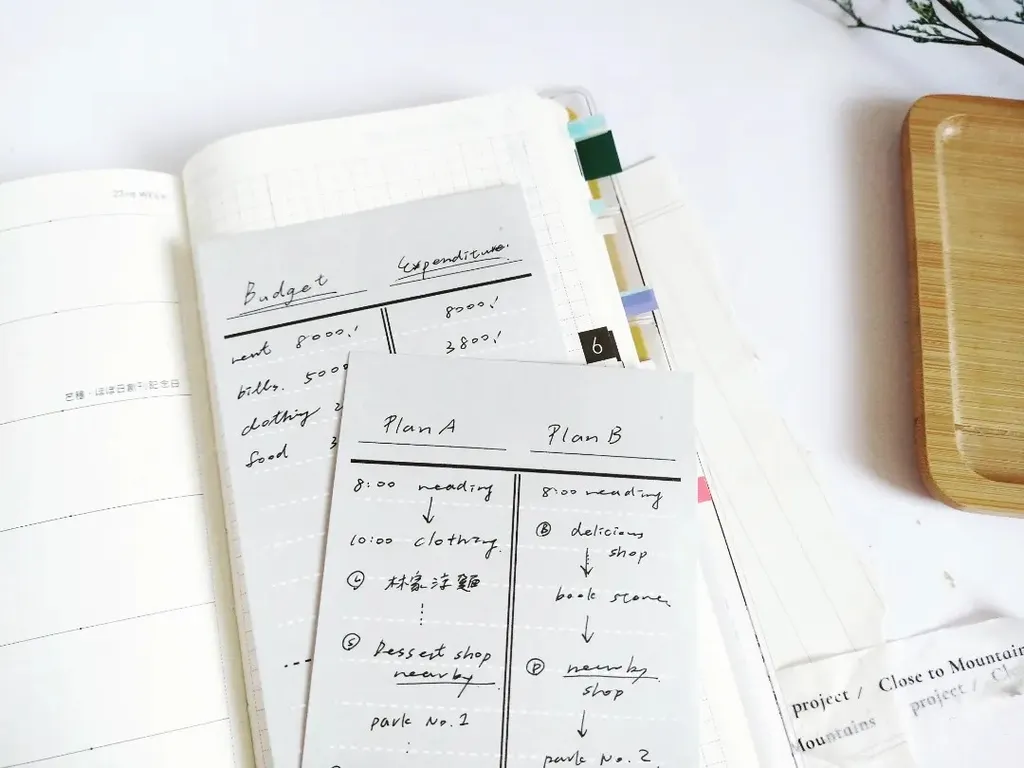 22nd WEEK
芒種・ほぼ日創刊記念日
Budget
Expenditure
rent 8000.!
8000.!
bills. 5000
3800.!
clothing 2
food 3
6
Plan A
8:00 reading
10:00 clothing.
Ⓛ 林家涼麵
Ⓢ Dessert shop
nearby
park No.1
Plan B
8:00 reading
Ⓑ delicious
shop
book store.
Ⓓ nearby
shop
park No. 2
project / Close to Mountain
Mountains
project / Cl